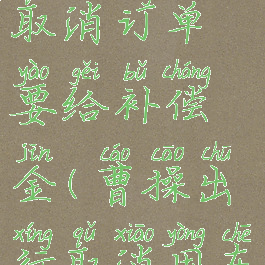 取消订单
yào gěi bǔ cháng
要给补偿
jīn cáo cāo chū
金(曹操出
xíng qǔ xiāo yòng chē
行取消用车